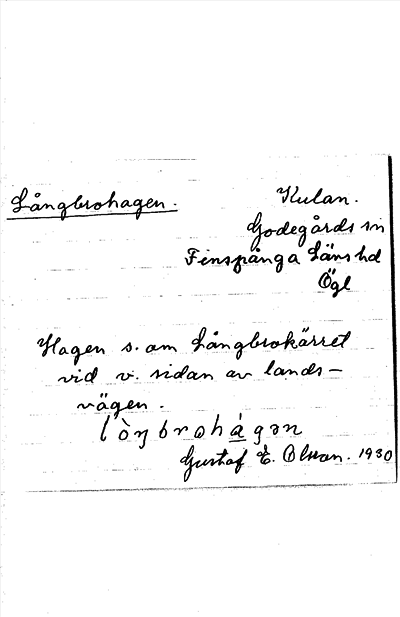 Långbrohagen.
Kulan.
Godegårds sn
Finspånga Läns hd
Ögl
Hagen s. om Långbrokärret
vid v. sidan av lands-
vägen.
lòŋbrohágən
Gustaf E. Olsson. 1930